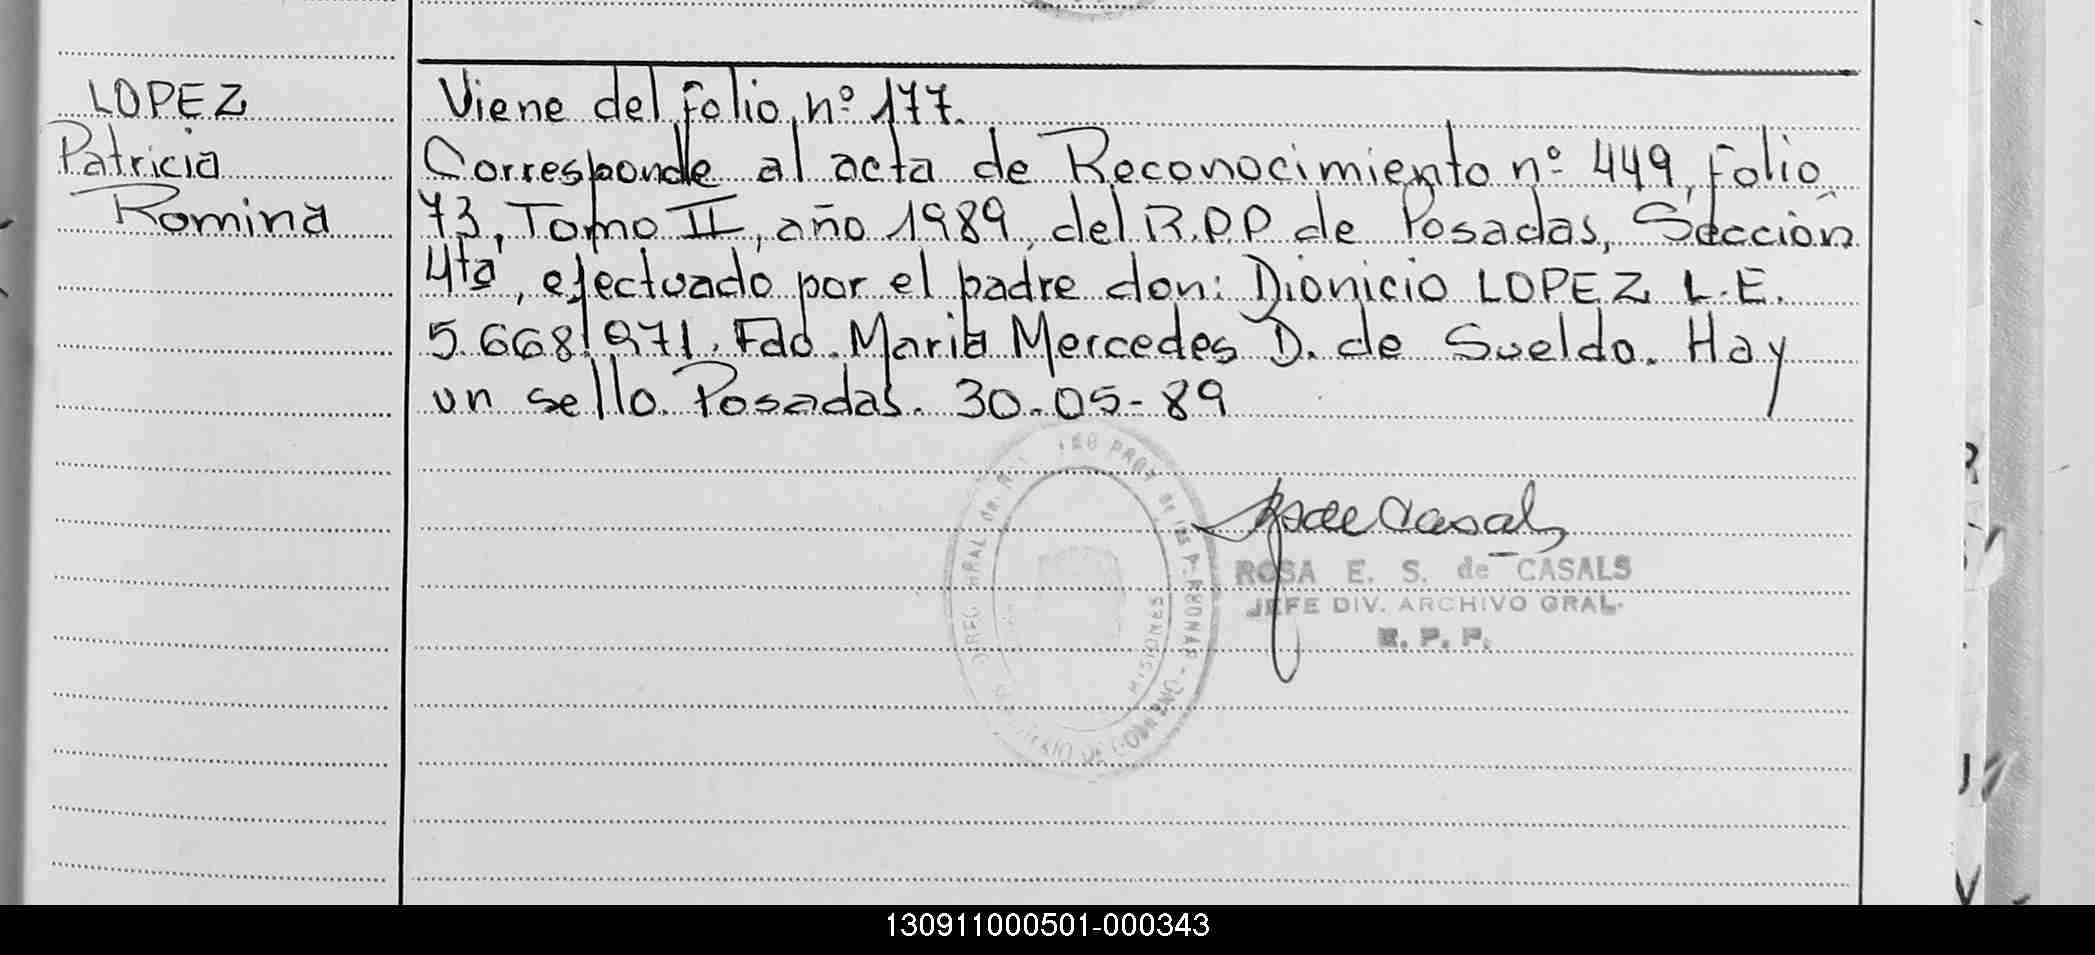 LOPEZ
Patricia
Romina
Viene del folio nº 177.
Corresponde al acta de Reconocimiento nº 449, folio
73, Tomo II, año 1989, del R.P.P de Posadas, Sección
4ta, efectuado por el padre don: Dionicio LOPEZ L.E.
5.668.971. Fdo. Maria Mercedes D. de Sueldo. Hay
un sello. Posadas. 30-05-89
de Casals
ROSA E. S. de CASALS
JEFE DIV. ARCHIVO GRAL.
R. P. P.
MISIONES
130911000501-000343